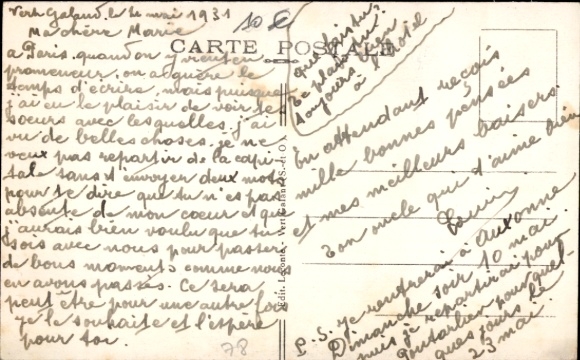 Vert Galand, le 2 mai 1931
Ma chère Marie
à Paris, quand on y reste en
promeneur, on acquière le
temps d'écrire, mais puisque
j'ai eu le plaisir de voir tes
soeurs avec lesquelles j'ai
vu de belles choses, je ne
veux pas repartir de la capi-
tale sans t'envoyer deux mots
pour te dire que tu n'es pas
absente de mon coeur et que
j'aurais bien voulu que tu
sois avec nous pour passer
de bons moments comme nous
en avons passés. Ce sera
peut être pour une autre fois
je le souhaite et l'espère
pour toi.
10 c
CARTE POSTALE
que fais tu?
Te plais tu
toujours bien
à l'hôtel
En attendant reçois
mille bonnes pensées
et mes meilleurs baisers.
Ton oncle que t'aime bien
P.S. je rentrerai à Auxonne
Dimanche soir 10 mai
puis je repartirai pour
Pontarlier pour quel-
ques jours le
23 mai.
Edit. Leconte, Vert Galant (S.-et-O.)
78